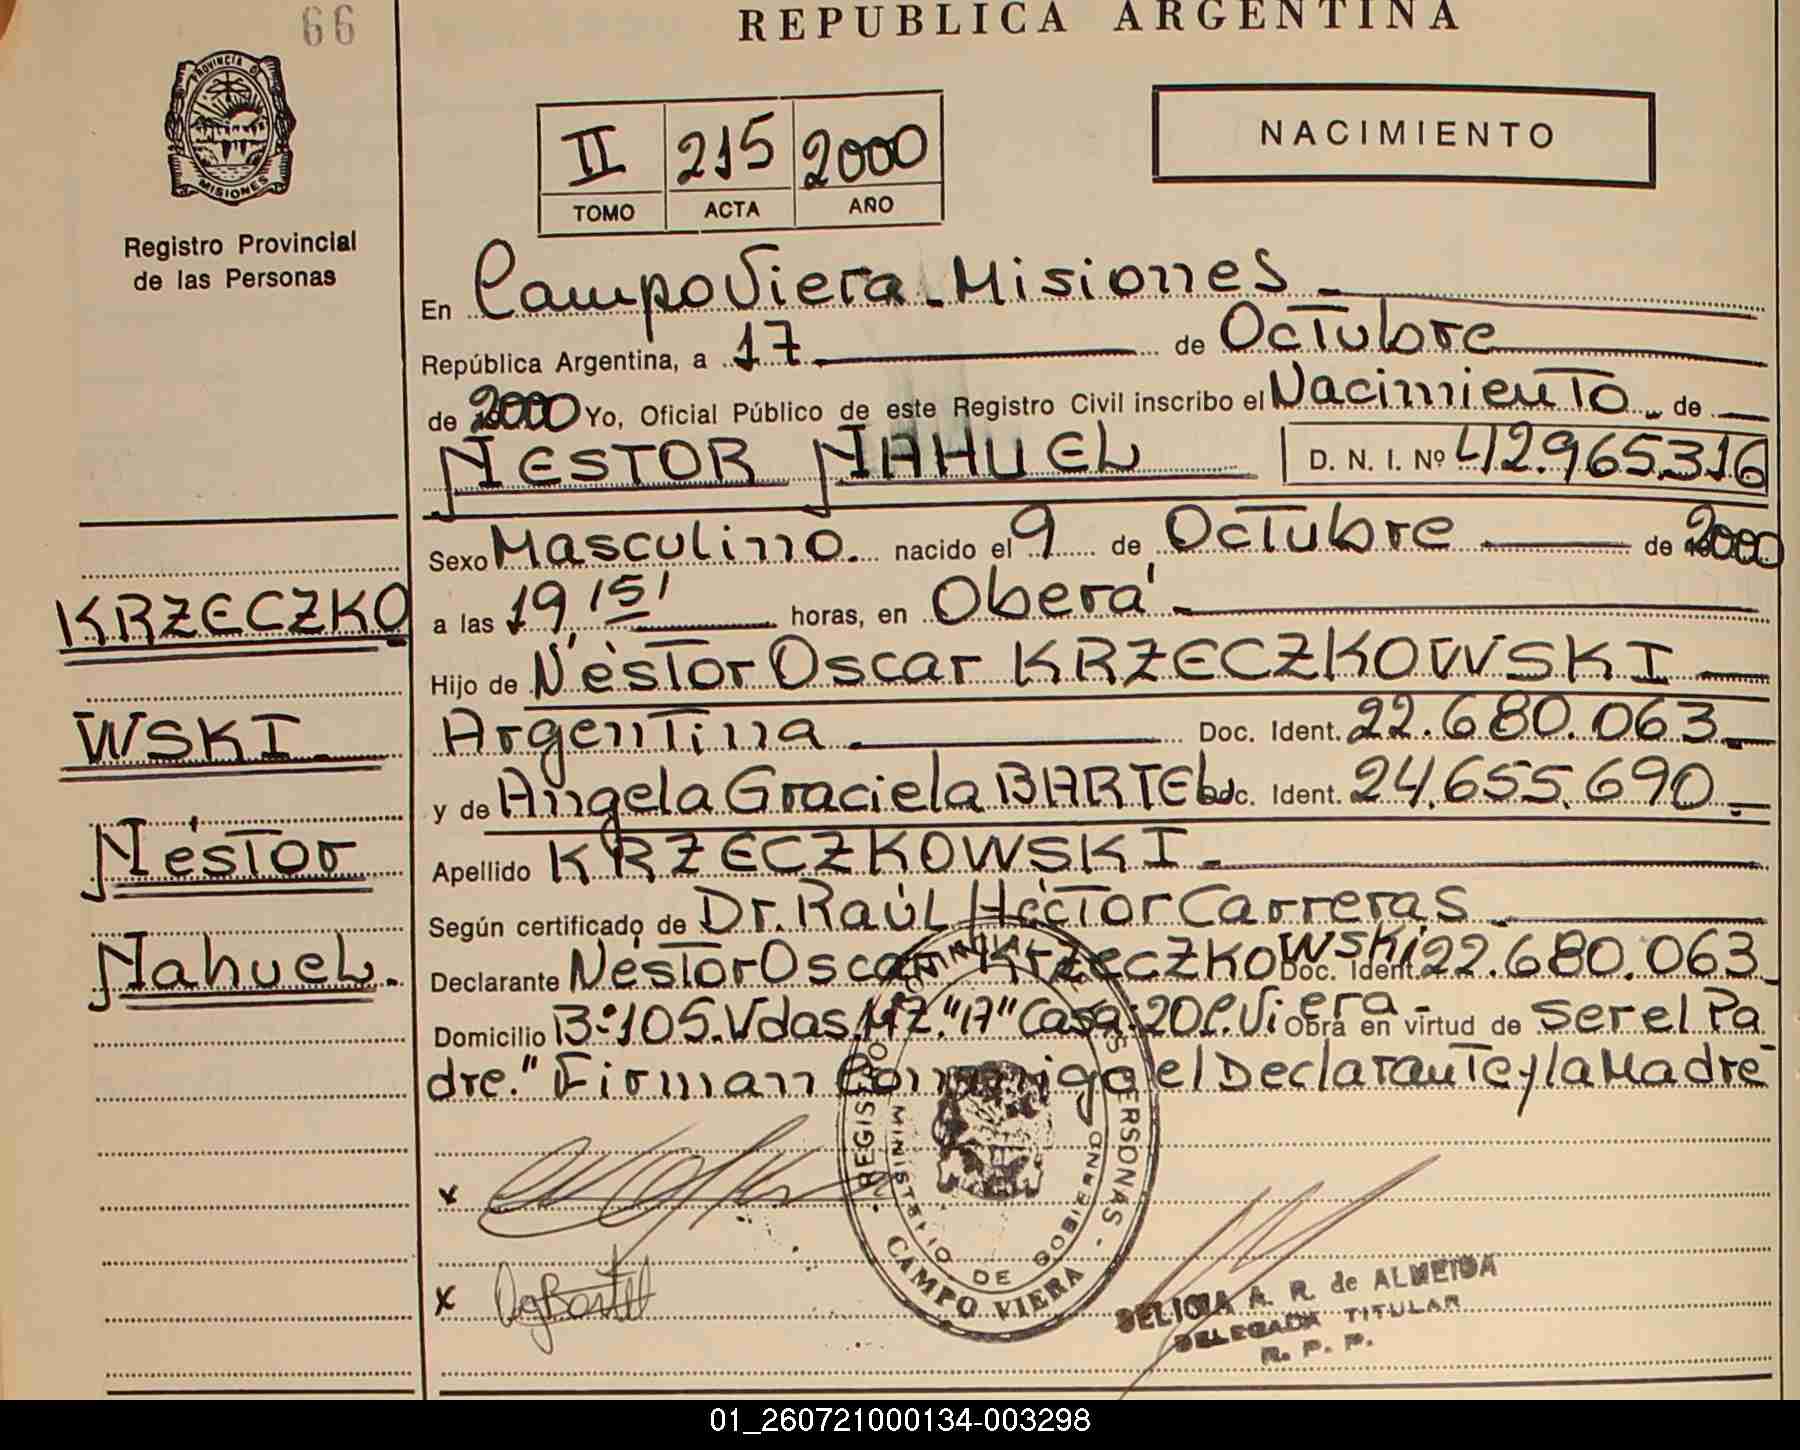 66
REPUBLICA ARGENTINA
PROVINCIA D
MISIONES
Registro Provincial
de las Personas
II 215 2000
TOMO ACTA AÑO
NACIMIENTO
En Campo Viera - Misiones -
República Argentina, a 17 de Octubre
de 2000 Yo, Oficial Público de este Registro Civil inscribo el Nacimiento - de
NESTOR NAHUEL D. N. I. Nº 42.965.316
Sexo Masculino. nacido el 9 de Octubre de 2000
a las 19,15' horas, en Oberá -
Hijo de Néstor Oscar KRZECZKOWSKI
Argentina - Doc. Ident. 22.680.063 -
y de Angela Graciela BARTEL Doc. Ident. 24.655.690 -
Apellido KRZECZKOWSKI -
Según certificado de Dr. Raúl Héctor Carreras -
Declarante Néstor Oscar Krzeczkowski Doc. Ident. 22.680.063 -
Domicilio B° 105. Vdas. MZ. "A" Casa: 20 C. Viera - Obra en virtud de ser el Pa
dre." Firman Conmigo el Declarante y la Madre -
KRZECZKO
WSKI -
Néstor
Nahuel -
x
x AgBartel
REGISTRO PROVINCIAL DE LAS PERSONAS -
MINISTERIO DE GOBIERNO
- CAMPO VIERA -
DELICIA A. R. de ALMEIDA
DELEGADA TITULAR
R. P. P.
01_260721000134-003298